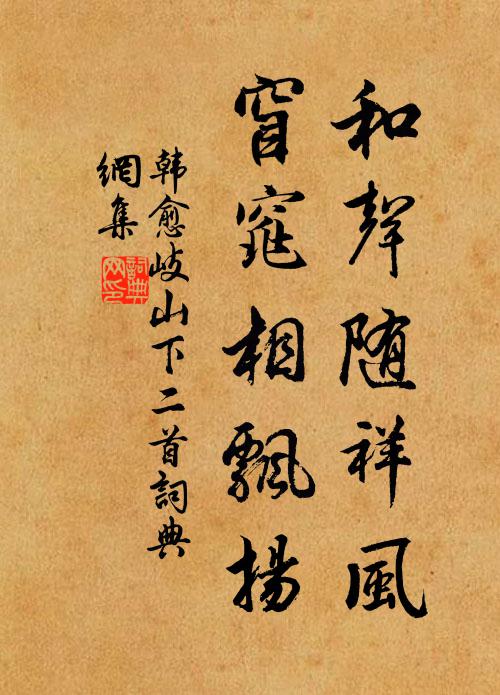 和聲随祥風
窅窕相飄揚
韩愈岐山下二首詞典
網集
詞典
网印